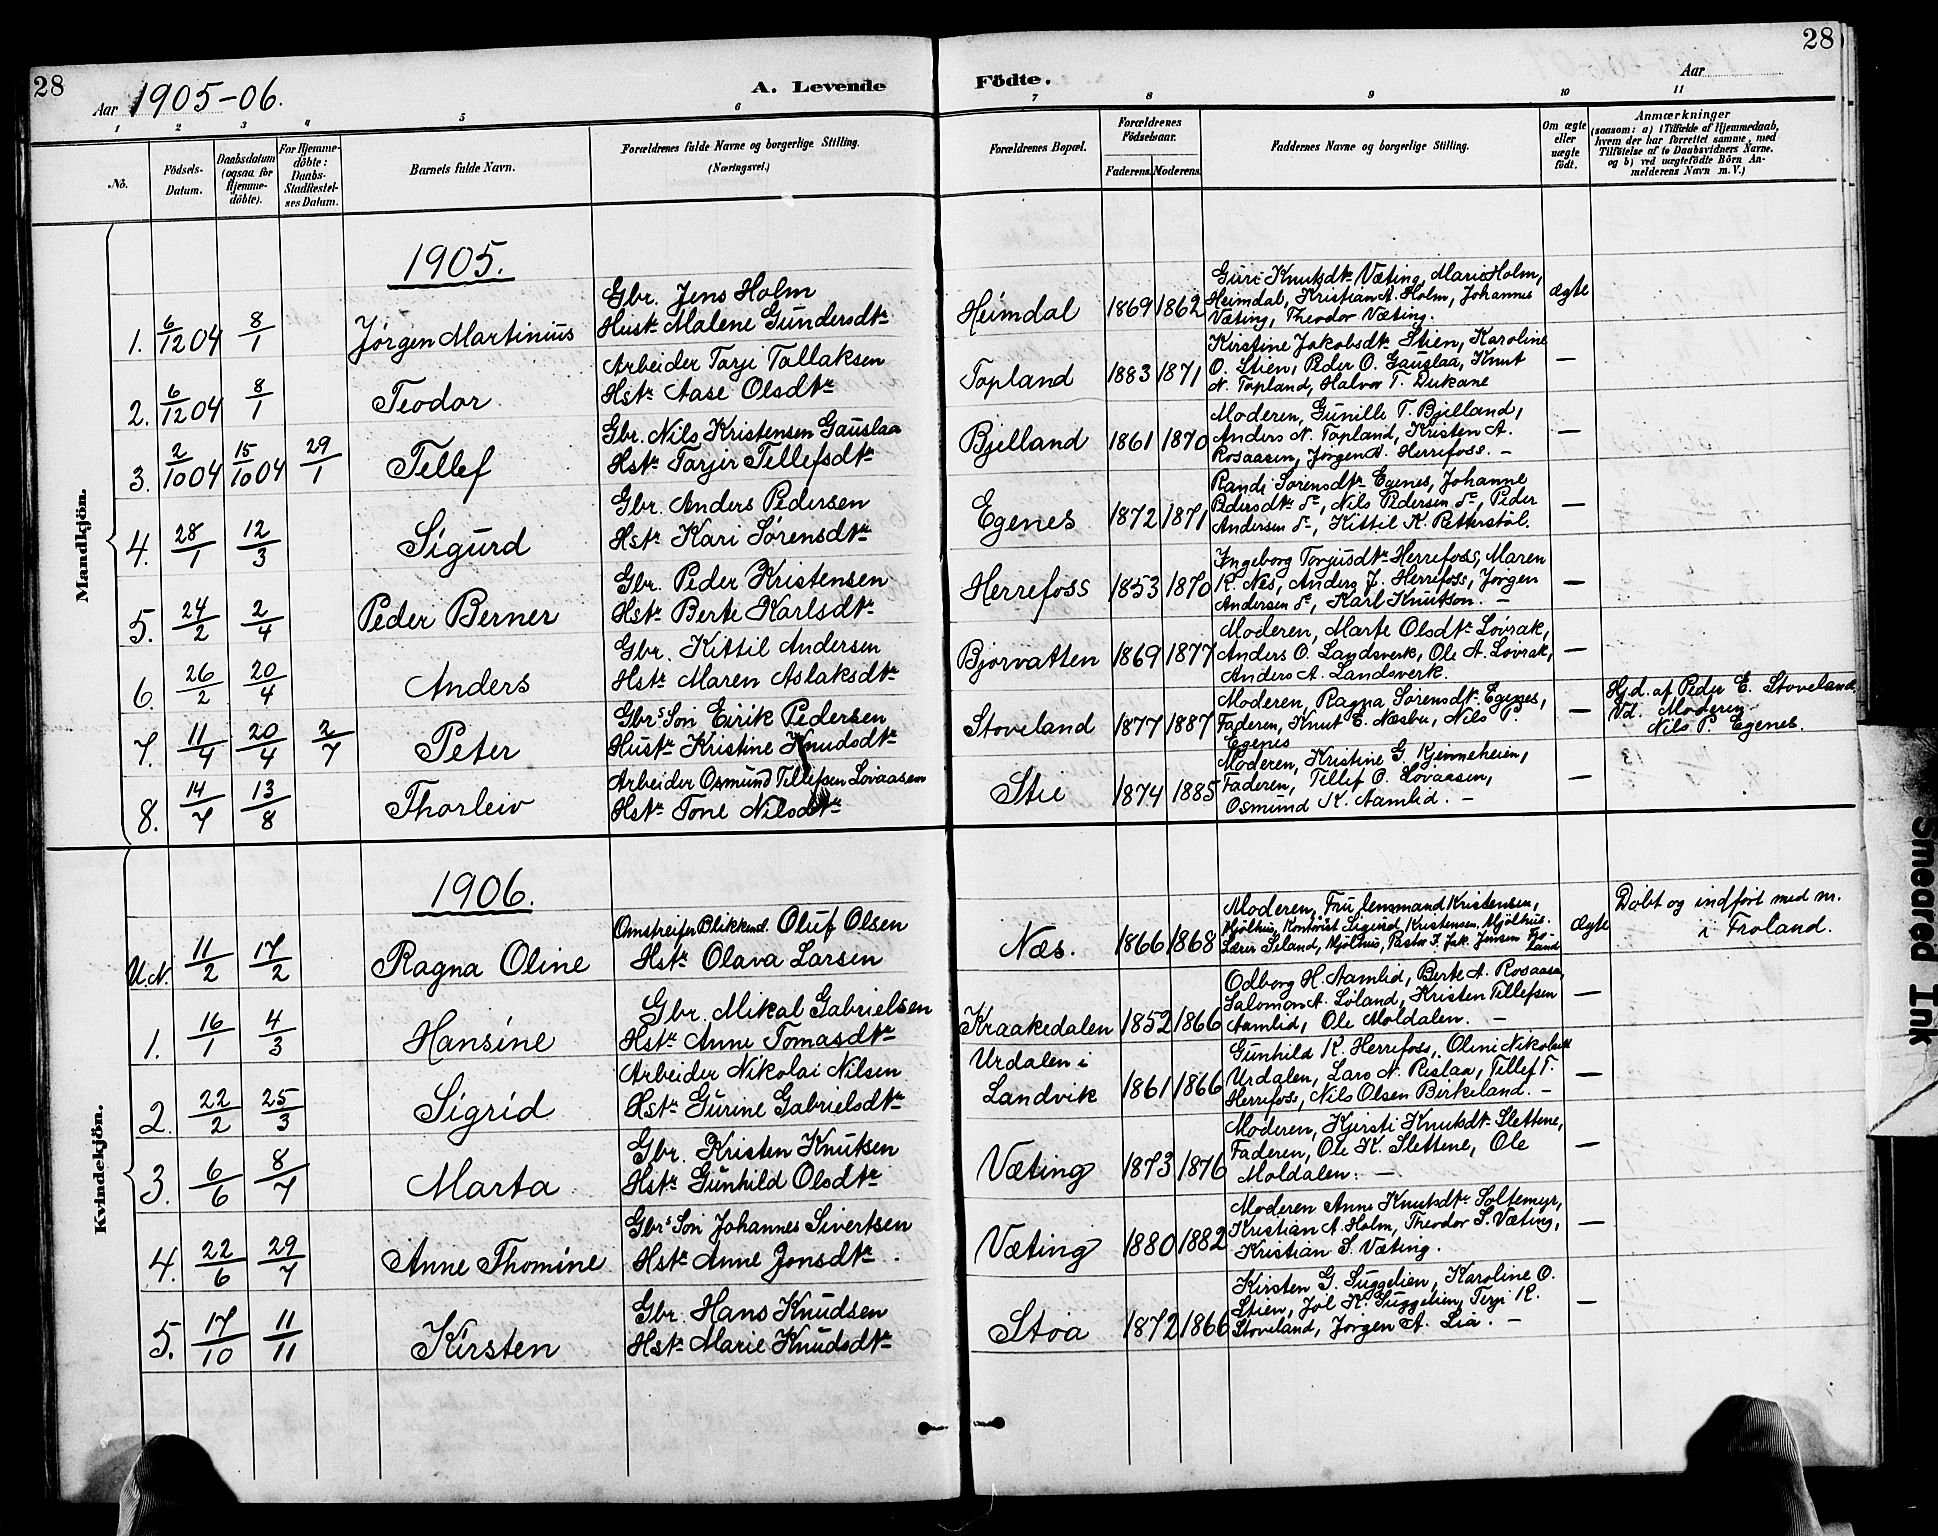 28
Aar 1905-06.
A. Levende
Födte.
Aar
28
1 2 3 4 5 6 7 8 9 10 11
No.
Födsels-Datum.
Daabsdatum (ogsaa for Hjemme-döbte).
For Hjemme-döbte: Daabs-Stadfestel-ses Datum.
Barnets fulde Navn.
Forældrenes fulde Navne og borgerlige Stilling. (Næringsvei.)
Forældrenes Bopæl.
Forældrenes Födselsaar.
Faderens. Moderens.
Faddernes Navne og borgerlige Stilling.
Om ægte eller uægte födt.
Anmærkninger
(saasom: a) i Tilfælde af Hjemmedaab, hvem der har forrettet samme, med Tilföielse af to Daabsvidners Navne, og b) ved uægtefödte Börn An-melderens Navn m. V.)
Mandkjön.
1905.
1. 6/12 04 8/1 Jørgen Martinius
Gbr. Jens Holm
Hustr. Malene Gundersdtr
Heimdal 1869 1862
Guri Knutsdtr Væting, Marie Holm,
Heimdal, Kristian A. Holm, Johannes
Væting, Theodor Væting.
ægte
2. 6/12 04 8/1 Teodor
Arbeider Tarje Tallaksen
Hstr Aase Olsdtr
Topland 1883 1871
Kirstine Jakobsdtr Stien, Karoline
O. Stien, Peder O. Gauslaa, Knut
N. Topland, Halvor T. Dukane
—
3. 2/10 04 15/10 04 29/1 Tellef
Gbr. Nils Kristensen Gauslaa
Hstr Tarjer Tellefsdtr
Bjelland 1861 1870
Moderen, Gunille T. Bjelland,
Anders N. Topland, Kristen A.
Rosaasen, Jørgen A. Herrefoss. —
—
4. 28/1 12/3 Sigurd
Gbr. Anders Pedersen
Hstr Kari Sørensdtr
Egenes 1872 1871
Randi Sørensdtr Egenes, Johanne
Pedersdtr do, Nils Pedersen do, Peder
Andersen do, Kittil K. Retterstøl.
—
5. 24/2 2/4 Peder Berner
Gbr. Peder Kristensen
Hstr Berte Karlsdtr
Herrefoss 1853 1870
Ingeborg Torjusdtr Herrefoss, Maren
K. Nes, Anders J. Herrefoss, Jørgen
Andersen do, Karl Knutson. —
—
6. 26/2 20/4 Anders
Gbr. Kittil Andersen
Hstr Maren Aslaksdtr
Bjorvatten 1869 1877
Moderen, Marte Olsdtr Lovrak,
Anders O. Landsverk, Ole A. Lovrak,
Anders A. Landsverk.
—
7. 11/4 20/4 2/7 Peter
Gbrs Søn Eirik Pedersen
Hustr Kristine Knudsdtr
Stoveland 1877 1887
Moderen, Ragna Sørensdtr Egenes,
Faderen, Knut E. Næsbu, Nils P.
Egenes
—
Hjd. af Peder E. Stoveland
Vd. Moderen
Nils P. Egenes.
8. 14/7 13/8 Thorleiv
Arbeider Osmund Tellefsen Lovaasen
Hstr Tone Nilsdtr
Stie 1874 1885
Moderen, Kristine G. Kjenneheien,
Faderen, Tellef O. Lovaasen,
Osmund K. Aamlid. —
—
Kvindekjön.
1906.
U.N. 11/2 17/2 Ragna Oline
Omstreifer Blikkensl. Oluf Olsen
Hstr Olava Larsen
Næs. 1866 1868
Moderen, Fru lensmand Kristensen,
Mjölhus, Kontorist Sigurd Kristensen Mjölhus.
Lærer Seland, Mjölhus, Pastor T. Jak. Jensen Fro-
land
Ægte
Döbt og indført med nr.
i Froland.
1. 16/1 4/3 Hansine
Gbr. Mikal Gabrielsen
Hstr Anne Tomasdtr
Kraakedalen 1852 1866
Odborg H. Aamlid, Berte A. Rosaasen,
Salomon A. Løland, Kristen Tellefsen
Aamlid, Ole Moldalen. —
—
2. 22/2 25/3 Sigrid
Arbeider Nikolai Nilsen
Hstr Gurine Gabrielsdtr
Urdalen i
Landvik 1861 1866
Gunhild K. Herrefoss, Oline Nikolaidtr
Urdalen, Lars N. Rislaa, Tellef T.
Herrefoss, Nils Olsen Birkeland. —
—
3. 6/6 8/7 Marta
Gbr. Kristen Knutsen
Hstr Gunhild Olsdtr
Væting 1873 1876
Moderen, Kjersti Knutsdtr Slettene,
Faderen, Ole K. Slettene, Ole
Moldalen. —
—
4. 22/6 29/7 Anne Thomine
Gbrs Søn Johannes Sivertsen
Hstr Anne Jonsdtr.
Væting 1880 1882
Moderen Anne Knutsdtr Soltemyr,
Kristian A. Holm, Theodor S. Væting,
Kristian S. Væting.
—
5. 17/10 11/11 Kirsten
Gbr. Hans Knudsen
Hstr Marie Knudsdtr
Stoa 1872 1866
Kirsten G. Suggelien, Karoline O.
Stien, Jol K. Suggelien, Terje K.
Stoveland, Jørgen A. Lia. —
—
Smeared Ink